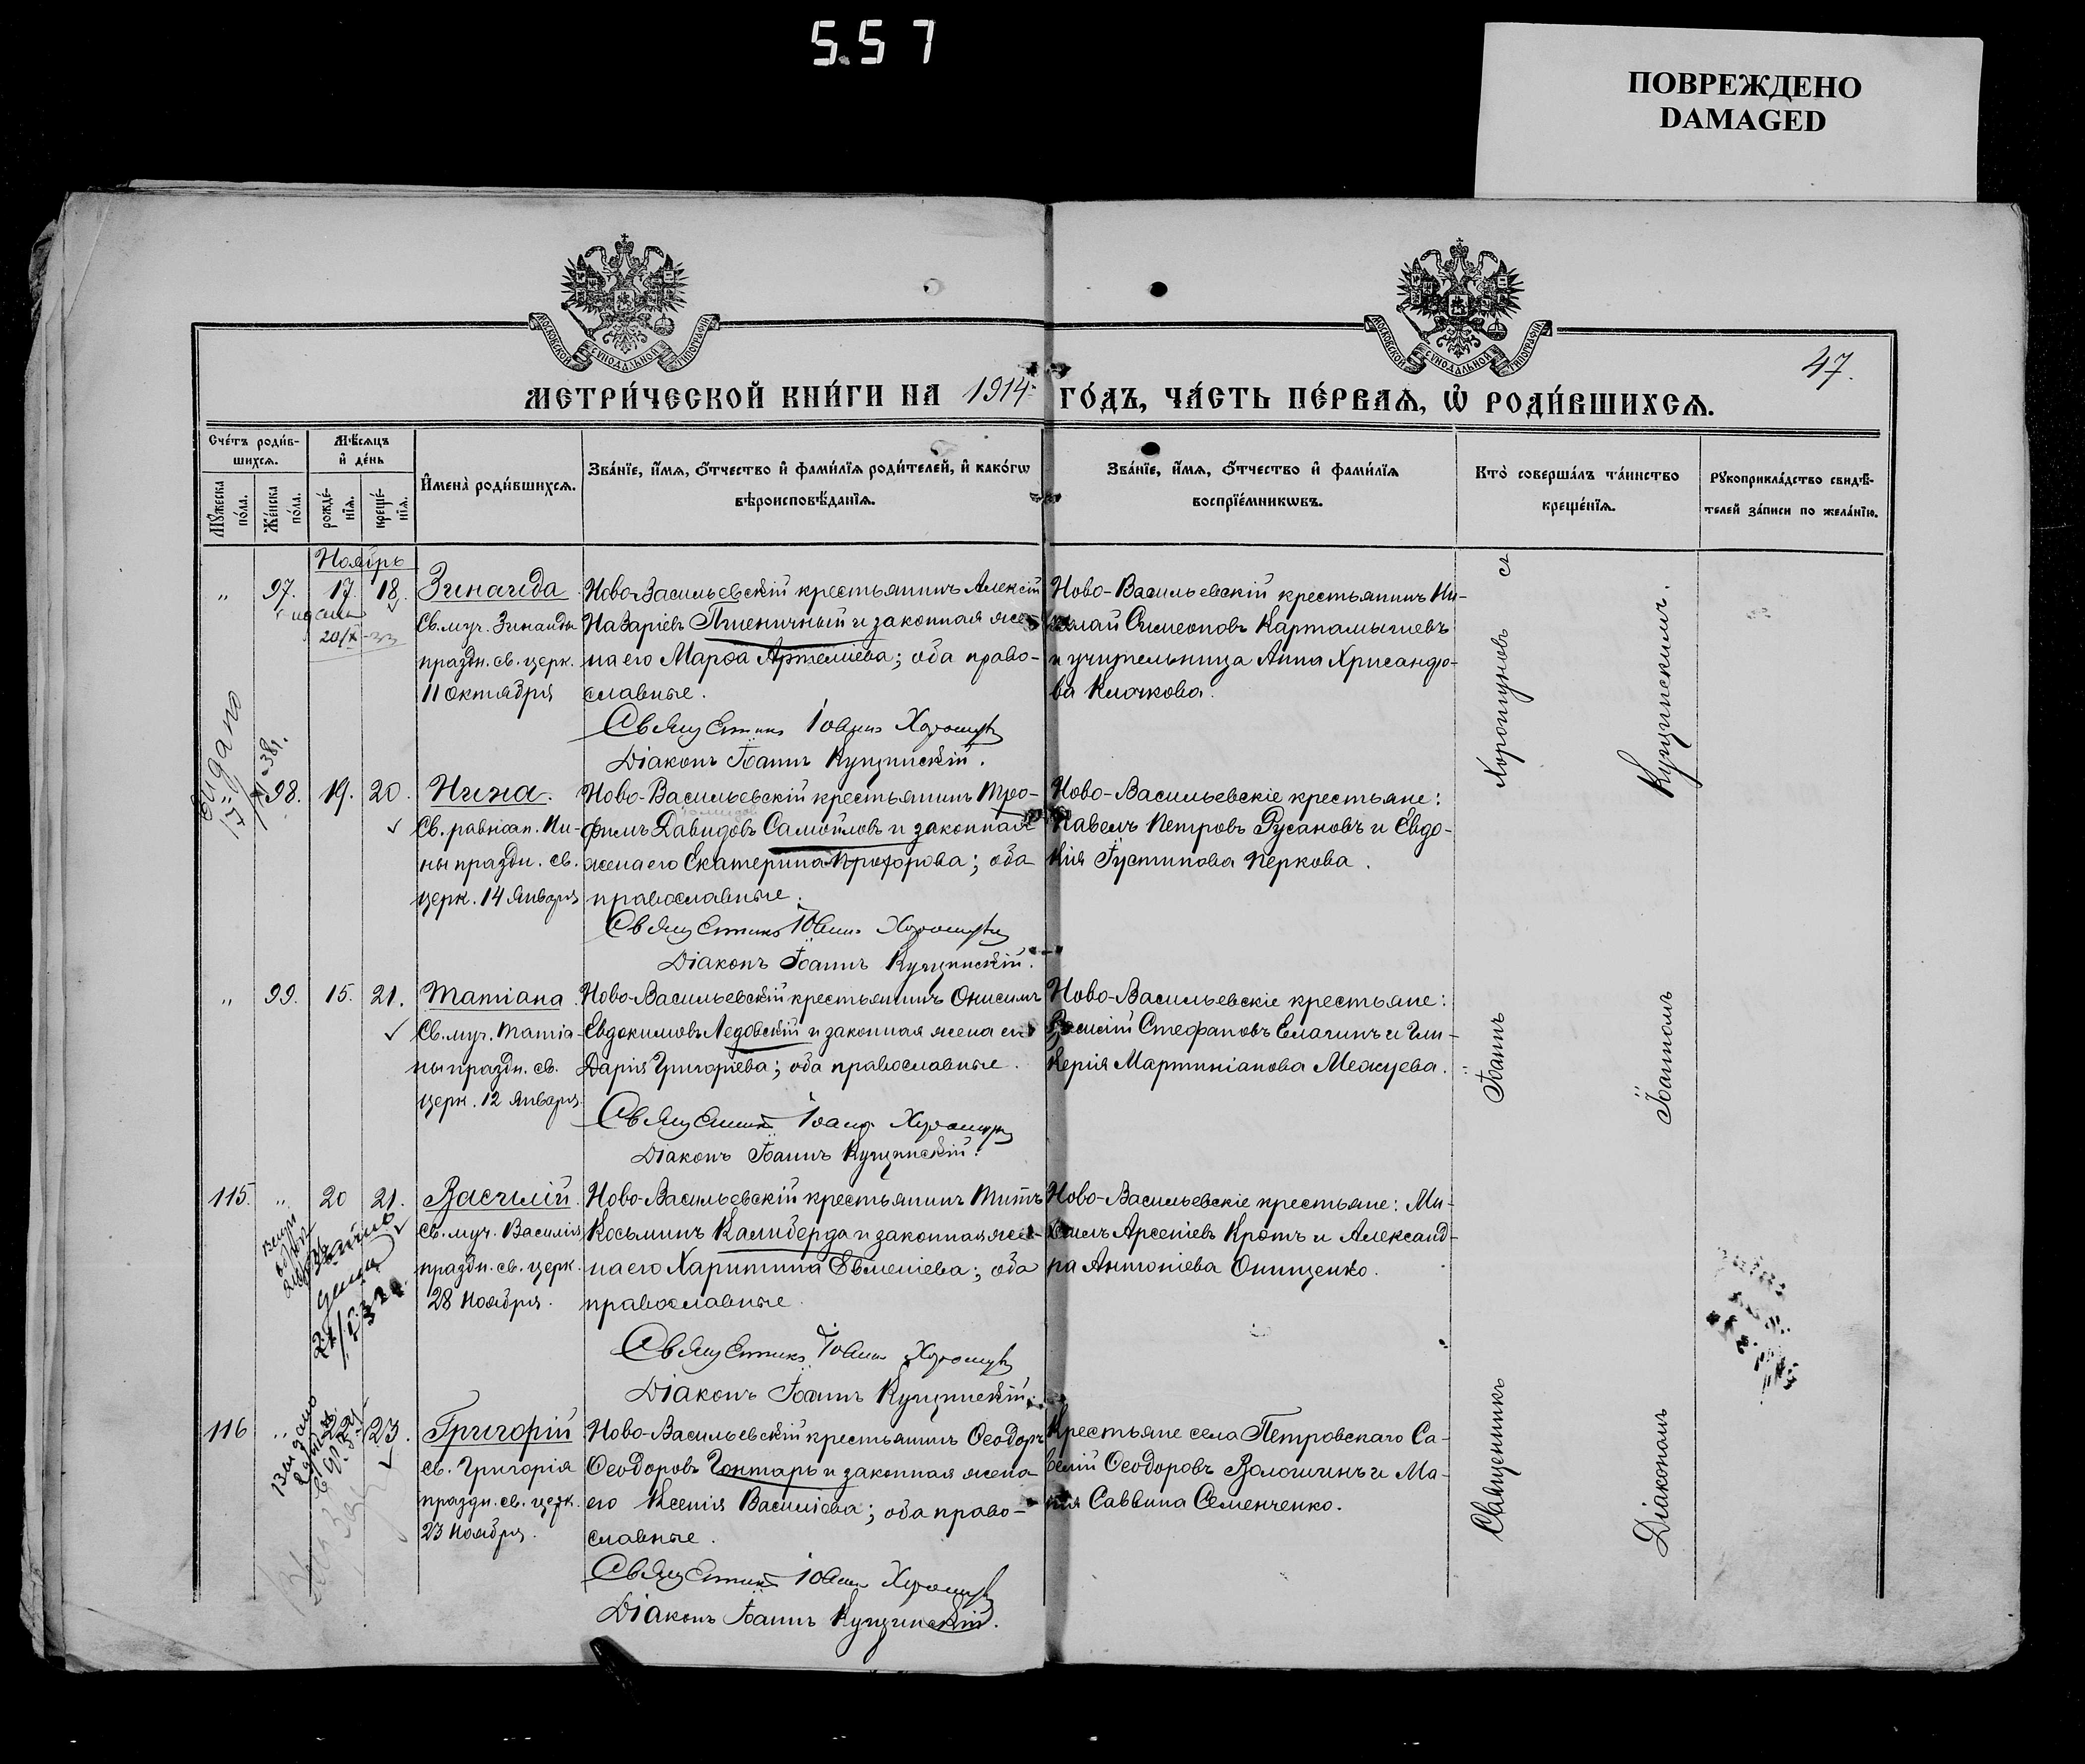 5.57
ПОВРЕЖДЕНО
DAMAGED
МОСКОВСКОЙ СѴНОДАЛЬНОЙ ТИПОГРАФІИ
МОСКОВСКОЙ СѴНОДАЛЬНОЙ ТИПОГРАФІИ
47.
МЕТРИ́ЧЕСКОЙ КНИ́ГИ НА 1914 ГО́ДЪ, ЧА́СТЬ ПЕ́РВАѦ, Ѡ҆ РОДИ́ВШИХСѦ.
Сче́тъ роди́в-
шихсѧ.
Мѣ́сѧцъ
и҆ де́нь
Мꙋ́жеска
по́ла.
Же́нска
по́ла.
рожде́-
нїѧ.
креще́-
нїѧ.
И҆мена̀ роди́вшихсѧ.
Зва́нїе, и҆́мѧ, ѻ҆́тчество и҆ фами́лїѧ роди́телей, и҆ како́гѡ
вѣроисповѣ́данїѧ.
Зва́нїе, и҆́мѧ, ѻ҆́тчество и҆ фами́лїѧ
воспрїе́мникѡвъ.
Кто̀ соверша́лъ та́инство
креще́нїѧ.
Рꙋкоприкла́дство свидѣ́-
телей за́писи по жела́нїю.
Ноябрь
„ 97. 17. 18. Зинаида
Св. муч. Зинаиды
праздн. св. церк.
11 октября
Ново-Васильевскій крестьянинъ Алексій
Назаріевъ Пшеничный и законная же-
на его Марѳа Артеміева; оба право-
славные.
Священникъ Іоаннъ Хорошунов
Діаконъ Іоаннъ Купчинскій.
Ново-Васильевскій крестьянинъ Ни-
колай Симеоновъ Картамышевъ
и учительница Анна Хрисанфо-
ва Клочкова.
Выдано
98. 19. 20. Нина.
Св. равноап. Ни-
ны праздн. св.
церк. 14 Января
Ново-Васильевскій крестьянинъ Тро-
фимъ Давидовъ Самойловъ и законная
жена его Екатерина Прохорова; оба
православные.
Священникъ Іоаннъ Хорошунов
Діаконъ Іоаннъ Купчинскій.
Ново-Васильевскіе крестьяне:
Павелъ Петровъ Русановъ и Евдо-
кія Іустинова Перкова.
„ 99. 15. 21. Татіана
Св. муч. Татіа-
ны праздн. св.
церк. 12 Января.
Ново-Васильевскій крестьянинъ Онисимъ
Евдокимовъ Ледовскій и законная жена его
Дарія Григоріева; оба православные.
Священникъ Іоаннъ Хорошунов
Діаконъ Іоаннъ Купчинскій.
Ново-Васильевскіе крестьяне:
Стефановъ Елагинъ и Гли-
керія Мартиніанова Межуева.
115. „ 20 21. Василій
Св. муч. Василія
праздн. св. церк.
28 Ноября.
Ново-Васильевскій крестьянинъ Титъ
Косьминъ Калиберда и законная же-
на его Харитина Евменіева; оба
православные.
Священникъ Іоаннъ Хорошунов
Діаконъ Іоаннъ Купчинскій.
Ново-Васильевскіе крестьяне: Ми-
хаилъ Арсеніевъ Кротъ и Александ-
ра Антоніева Онищенко.
116 „ 22 23. Григорій
св. Григорія
праздн. св. церк.
23 Ноября.
Ново-Васильевскій крестьянинъ Ѳеодоръ
Ѳеодоровъ Гонтарь и законная жена
его Ксенія Василіева; оба право-
славные.
Священникъ Іоаннъ Хорошунов
Діаконъ Іоаннъ Купчинскій.
Крестьяне села Петровскаго Са-
велій Ѳеодоровъ Волошинъ и Ма-
рія Саввина Семенченко.
Выдано
Священникъ Іоаннъ Хорошуновъ съ
Діакономъ Іоанномъ Купчинскимъ.